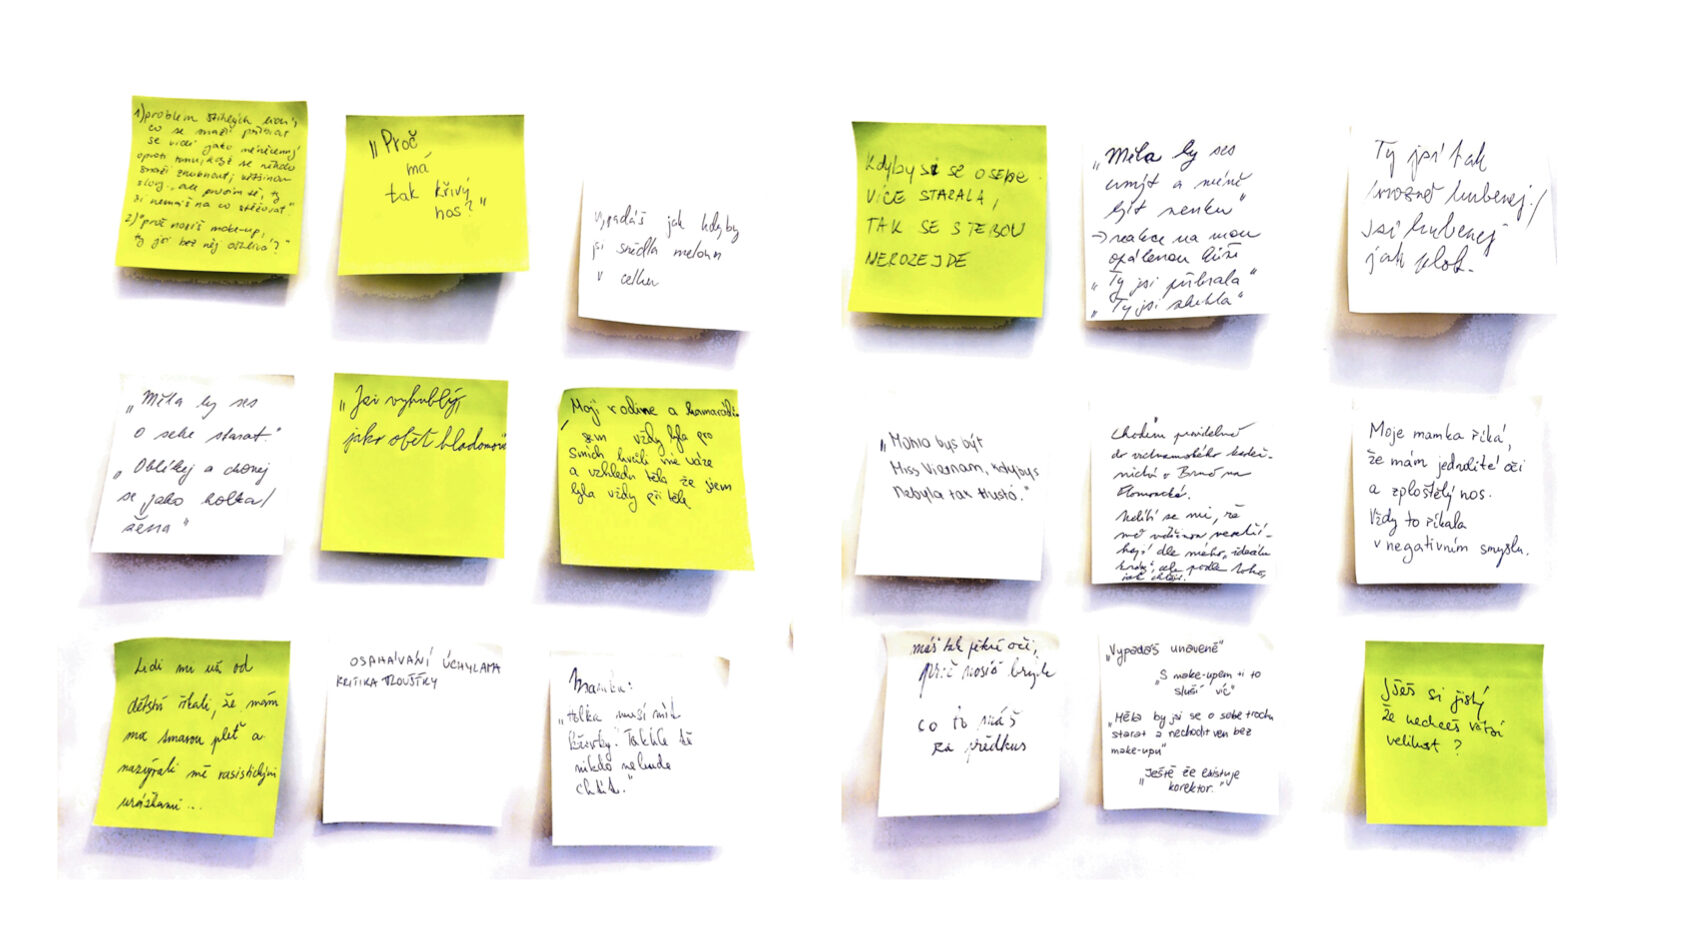 1) problém štíhlých lidí,
co se snaží přibrat
se vidí jako méněcenný
oproti tomu, když se někdo
snaží zhubnout; většinou
slovy „ale prosím tě, ty
si nemáš na co stěžovat"
2) "proč nosíš make-up,
ty jsi bez něj ošklivá?"
"Proč
má
tak křivý
nos?"
vypadáš jak kdyby
jsi snědla meloun
v celku
„Měla by ses
o sebe starat."
„Oblíkej a chovej
se jako holka/
žena"
„Jsi vyhublý,
jako oběť hladomoru
Moji rodine a kamarádi
jsem vždy byla pro
smích kvůli mé váze
a vzhledu těla že jsem
byla vždy při těle
Lidi mi už od
dětství říkali, že mám
moc tmavou pleť a
nazývali mě rasistickými
urážkami...
OSAHÁVÁNÍ ÚCHYLAMA
KRITIKA TLOUŠŤKY
Mamka:
„Holka musí mít
křivky. Takhle tě
nikdo nebude
chtít."
Kdyby si se o sebe
VÍCE STARALA,
TAK SE S TEBOU
NEROZEJDE
„Měla by ses
umýt a méně
být venku"
→ reakce na mou
opálenou kůži
„Ty jsi přibrala"
„Ty jsi zhubla"
Ty jsi tak
hrozně hubenej!/
Jsi hubenej
jak plot.
„Mohla bys být
Miss Vietnam, kdybys
nebyla tak tlustá."
Chodím pravidelně
do vietnamského kadeř-
nictví v Brně na
Olomoucké.
Nelíbí se mi, že
mě většinou nestří-
hají dle mého „ideálu
krásy", ale podle toho,
jak chtějí.
Moje mamka říká,
že mám jednolité oči
a zploštělý nos.
Vždy to říkala
v negativním smyslu.
máš tak pěkné oči,
proč nosíš brýle
co to máš
za předkus
„Vypadáš unaveně"
„S make-upem ti to
sluší víc"
„Měla by jsi se o sebe trochu
starat a nechodit ven bez
make-upu"
„Ještě že existuje
korektor."
Jseš si jistý
že nechceš větší
velikost?